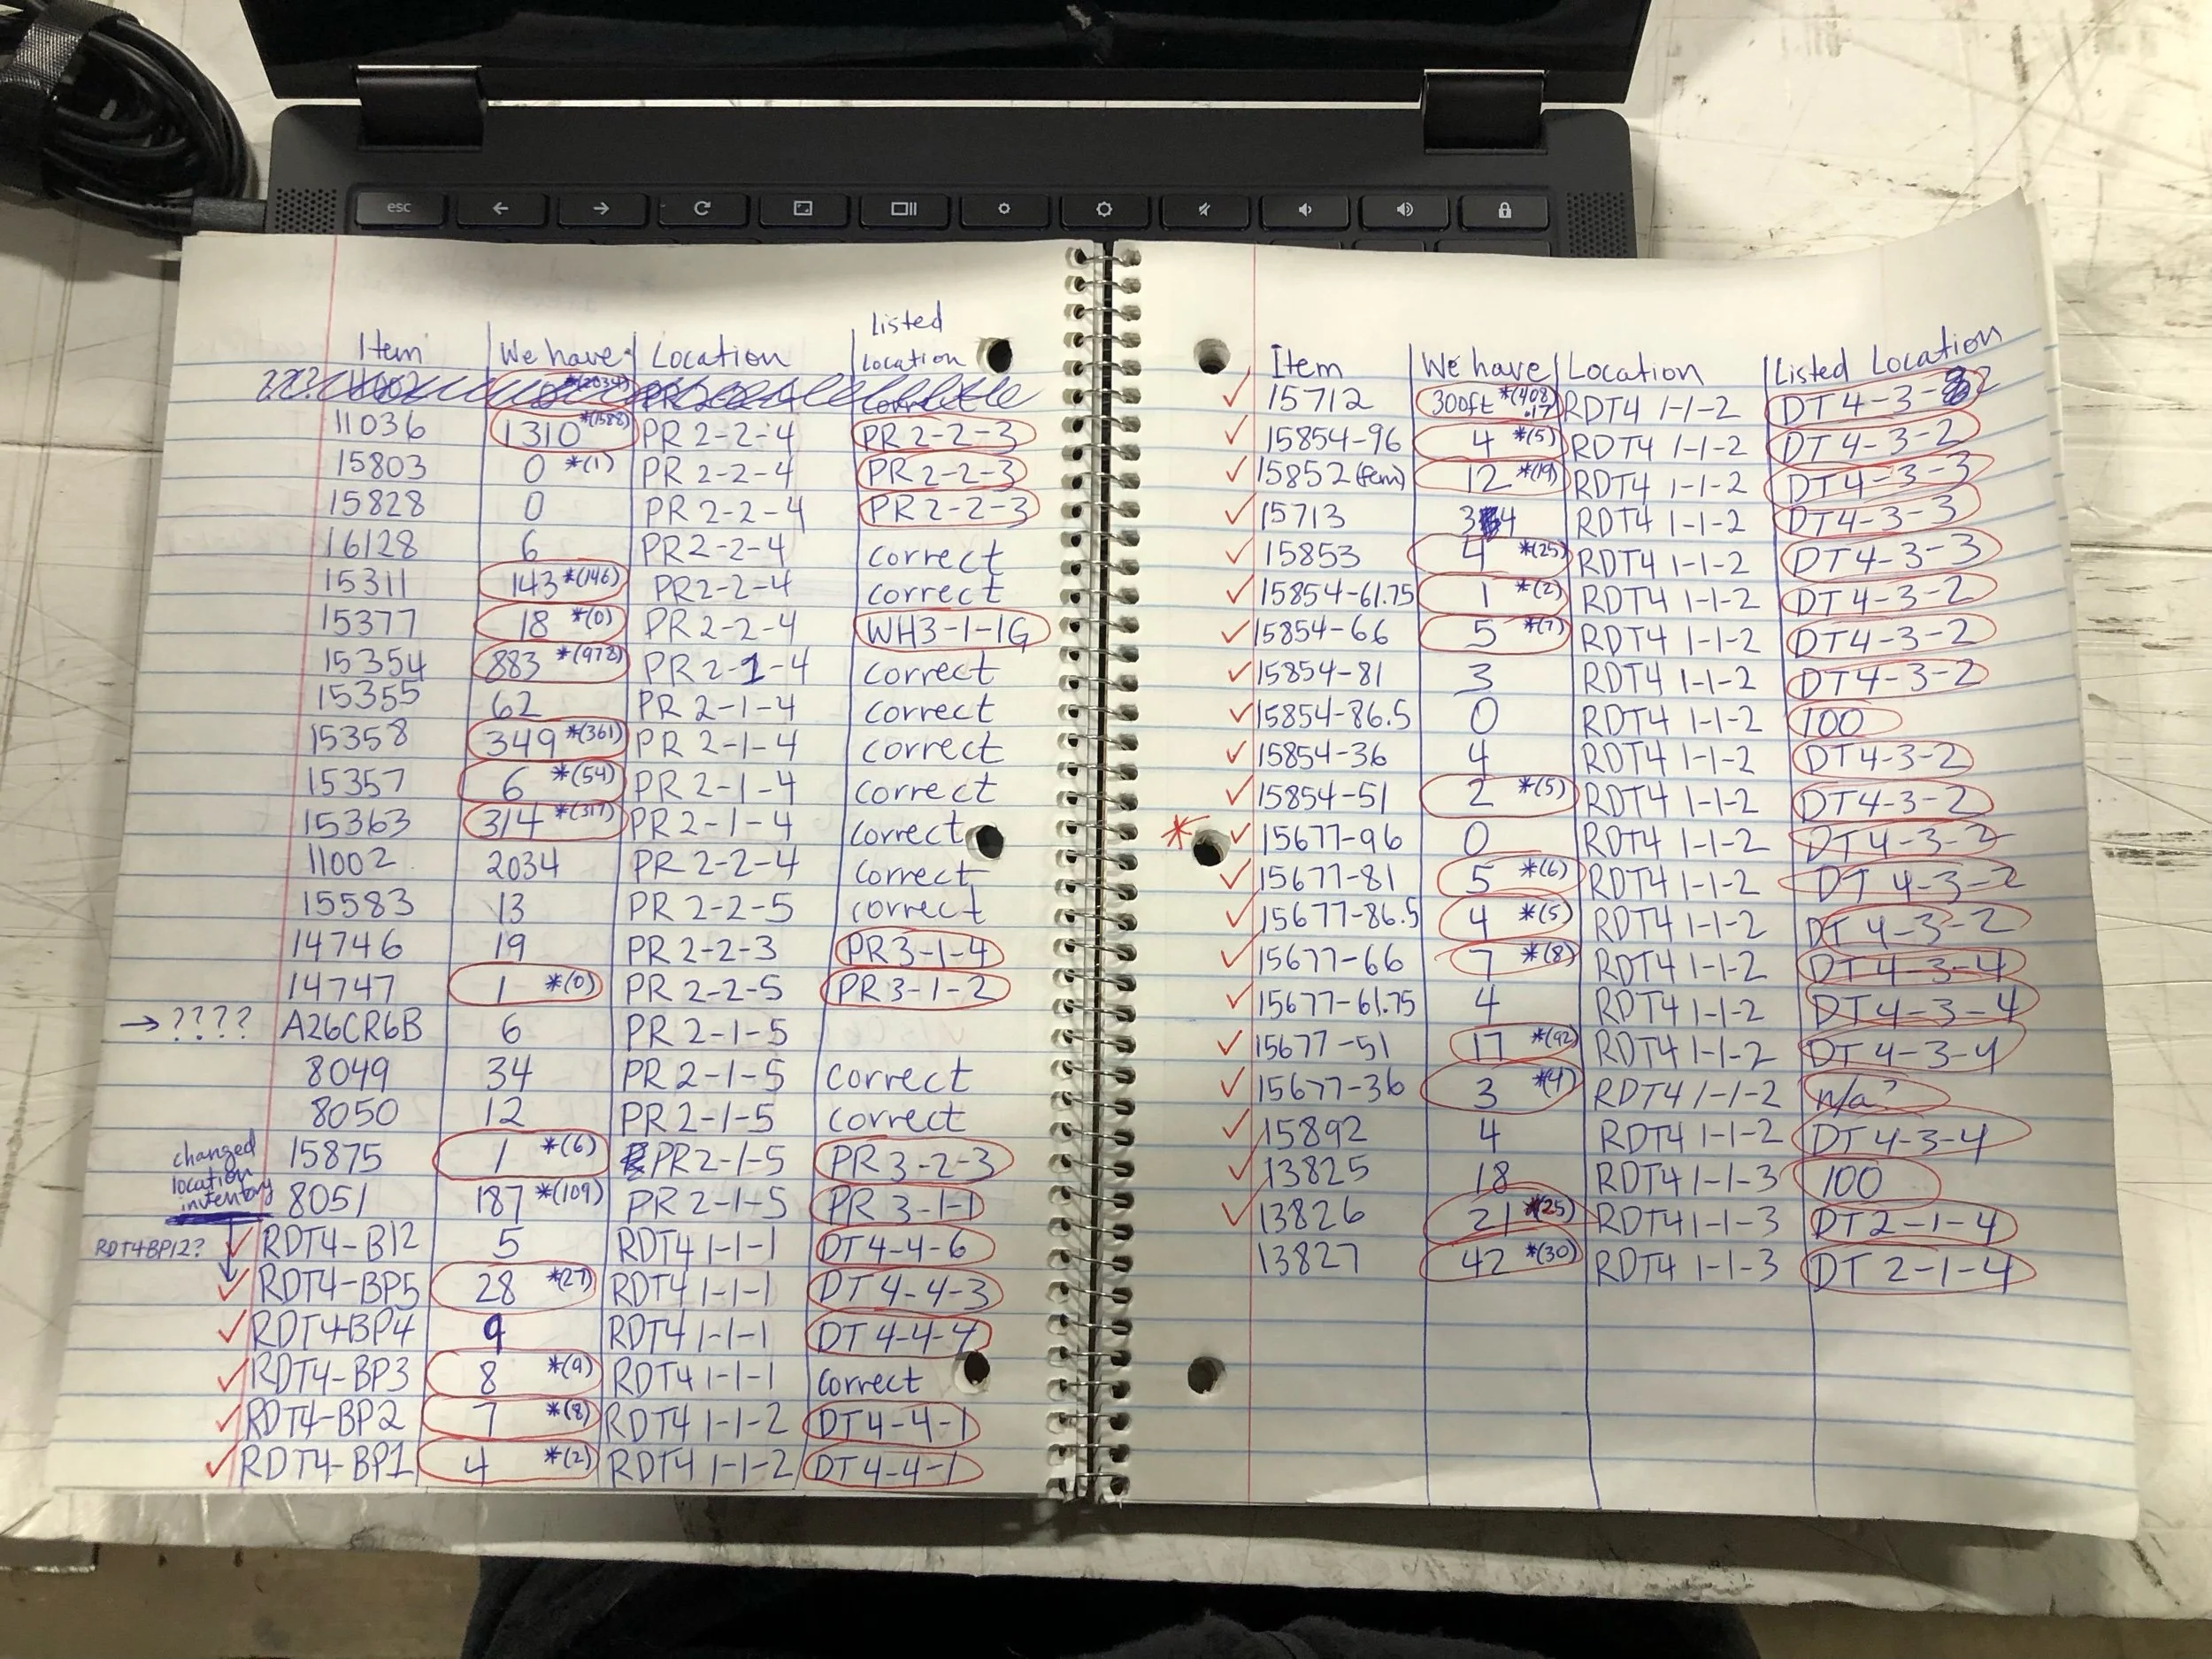 esc
Item We have Location Listed Location
11036 1310 *(1588) PR 2-2-4 PR 2-2-3
15803 0 *(1) PR 2-2-4 PR 2-2-3
15828 0 PR 2-2-4 PR 2-2-3
16128 6 PR 2-2-4 correct
15311 143 *(146) PR 2-2-4 correct
15377 18 *(0) PR 2-2-4 WH3-1-1G
15354 883 *(978) PR 2-1-4 correct
15355 62 PR 2-1-4 correct
15358 349 *(361) PR 2-1-4 correct
15357 6 *(54) PR 2-1-4 correct
15363 314 *(317) PR 2-1-4 correct
11002 2034 PR 2-2-4 correct
15583 13 PR 2-2-5 correct
14746 19 PR 2-2-3 PR3-1-4
14747 1 *(0) PR 2-2-5 PR3-1-2
→???? A26CR6B 6 PR 2-1-5
8049 34 PR 2-1-5 correct
8050 12 PR 2-1-5 correct
changed location inventory
15875 1 *(6) PR 2-1-5 PR 3-2-3
8051 187 *(109) PR 2-1-5 PR 3-1-1
RDT4BP12? ✓ RDT4-B12 5 RDT4 1-1-1 DT4-4-6
✓ RDT4-BP5 28 *(27) RDT4 1-1-1 DT4-4-3
✓ RDT4BP4 9 RDT4 1-1-1 DT4-4-4
✓ RDT4-BP3 8 *(9) RDT4 1-1-1 correct
✓ RDT4-BP2 7 *(8) RDT4 1-1-2 DT4-4-1
✓ RDT4-BP1 4 *(2) RDT4 1-1-2 DT4-4-1
Item We have Location Listed Location
✓ 15712 300ft *(408.17) RDT4 1-1-2 DT4-3-2
✓ 15854-96 4 *(5) RDT4 1-1-2 DT4-3-2
✓ 15852 (fem) 12 *(19) RDT4 1-1-2 DT4-3-3
✓ 15713 34 RDT4 1-1-2 DT4-3-3
✓ 15853 4 *(25) RDT4 1-1-2 DT4-3-3
✓ 15854-61.75 1 *(2) RDT4 1-1-2 DT4-3-2
✓ 15854-66 5 *(7) RDT4 1-1-2 DT4-3-2
✓ 15854-81 3 RDT4 1-1-2 DT4-3-2
✓ 15854-86.5 0 RDT4 1-1-2 100
✓ 15854-36 4 RDT4 1-1-2 DT4-3-2
✓ 15854-51 2 *(5) RDT4 1-1-2 DT4-3-2
* ✓ 15677-96 0 RDT4 1-1-2 DT4-3-2
✓ 15677-81 5 *(6) RDT4 1-1-2 DT4-3-2
✓ 15677-86.5 4 *(5) RDT4 1-1-2 DT4-3-2
✓ 15677-66 7 *(8) RDT4 1-1-2 DT4-3-4
✓ 15677-61.75 4 RDT4 1-1-2 DT4-3-4
✓ 15677-51 17 *(92) RDT4 1-1-2 DT4-3-4
✓ 15677-36 3 *(4) RDT4 1-1-2 n/a?
✓ 15892 4 RDT4 1-1-2 DT4-3-4
✓ 13825 18 RDT4 1-1-3 100
✓ 13826 21 *(25) RDT4 1-1-3 DT2-1-4
13827 42 *(30) RDT4 1-1-3 DT2-1-4